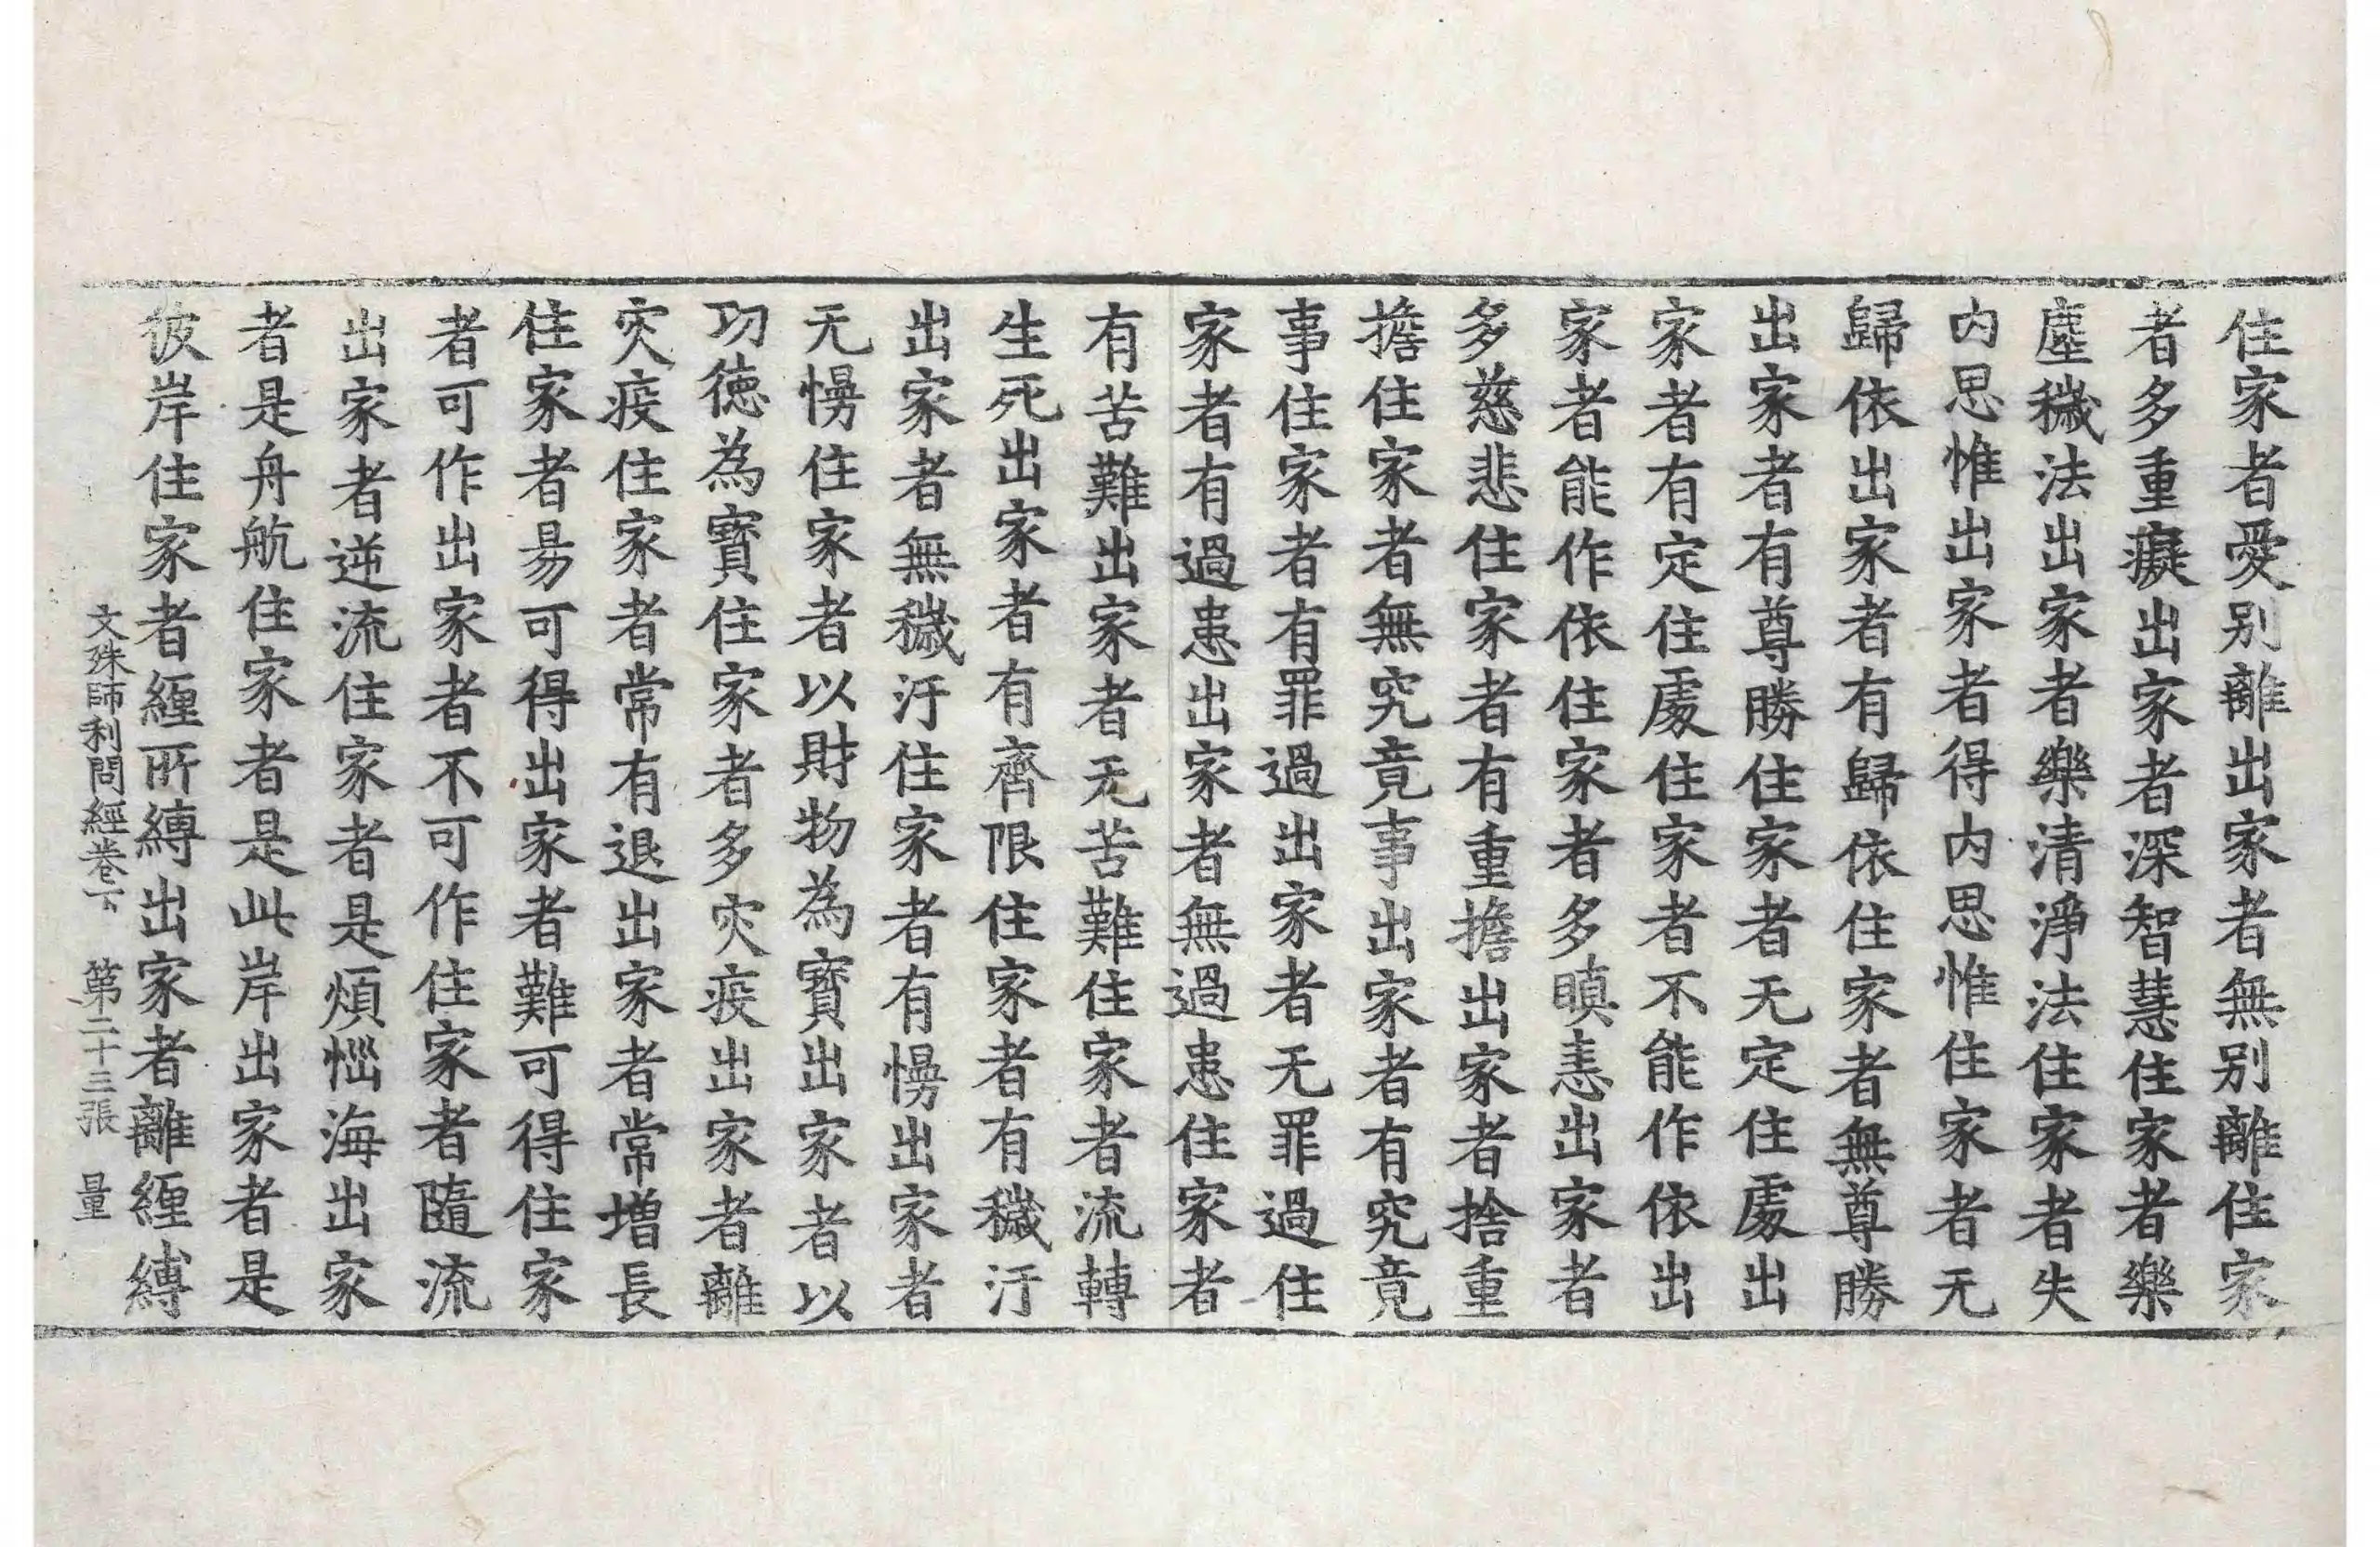 住家者愛别離出家者無别離住家
者多重癡出家者深智慧住家者樂
塵穢法出家者樂清淨法住家者失
内思惟出家者得内思惟住家者无
歸依出家者有歸依住家者無尊勝
出家者有尊勝住家者无定住處出
家者有定住處住家者不能作依出
家者能作依住家者多瞋恚出家者
多慈悲住家者有重擔出家者捨重
擔住家者無究竟事出家者有究竟
事住家者有罪過出家者无罪過住
家者有過患出家者無過患住家者
有苦難出家者无苦難住家者流轉
生死出家者有齊限住家者有穢汙
出家者無穢汙住家者有慢出家者
无慢住家者以財物為寶出家者以
功德為寶住家者多灾疫出家者離
灾疫住家者常有退出家者常增長
住家者易可得出家者難可得住家
者可作出家者不可作住家者隨流
出家者逆流住家者是煩惱海出家
者是舟航住家者是此岸出家者是
彼岸住家者纏所縛出家者離纏縛
文殊師利問經卷下 第二十三張 量